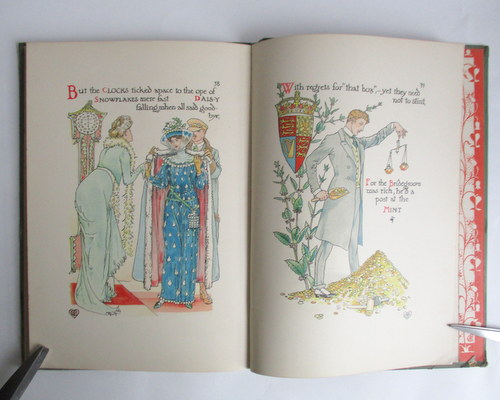 But the CLOCKS ticked apace to the ope of
SNOWFLAKES were fast DAISY
falling when all said good-
bye.
With regrets for "that boy",—yet they need
not to stint,
For the Bridegroom
was rich, he'd a
post at the
MINT